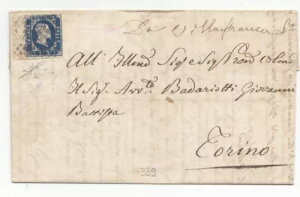 Da Villafranca
All' Illmo Sigre e Sigr Pron Colmo
Il Sigr Avvto Badariotti Giovanni
Battista
Torino
339